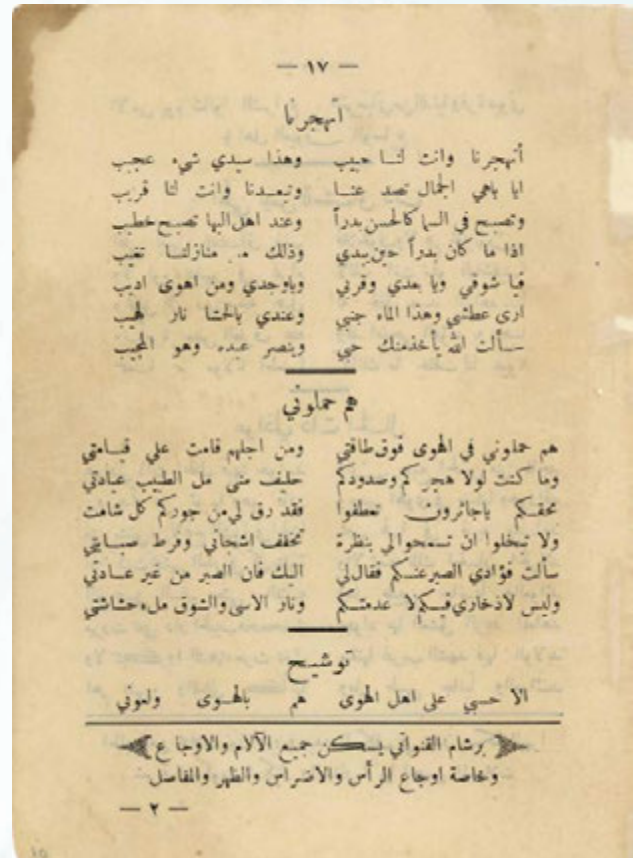 — ١٧ —
اتهجرنا
أتهجرنا وانت لنا حبيب وهذا سيدي شيء عجيب
ايا باهي الجمال تصد عنا وتبعدنا وانت لنا قريب
وتصبح في السما كالحسن بدراً وعند اهل البها تصبح خطيب
اذا ما كان بدراً حين يبدي وذلك من منازلنا تغيب
فيا شوقي ويا بعدي وقربي وياوجدي ومن اهوى اديب
ارى عطشي وهذا الماء جنبي وعندي بالحشا نار لهيب
سألت الله يأخذمنك حبي وينصر عبده وهو المجيب
هم حملوني
هم حملوني في الهوى فوق طاقتي ومن اجلهم قامت علي قيامتي
وما كنت لولا هجركم وصدودكم حليف منى مل الطبيب عيادتي
بحقكم ياجائرون تعطفوا فقد رق لي من جوركم كل شامت
ولا تبخلوا ان تسمحوا لي بنظرة تخفف اشجاني وفرط صبابتي
سألت فؤادي الصبر عنكم فقال لي اليك فان الصبر من غير عادتي
وليس لاذخاري فيكم لا عدمتكم ونار الاسى والشوق ملء حشاشتي
توشيح
الا حسبي على اهل الهوى هم بالهوى ولعوني
برشام القنواتي يسكن جميع الآلام والاوجاع
وبخاصة اوجاع الرأس والاضراس والظهر والمفاصل
— ٢ —